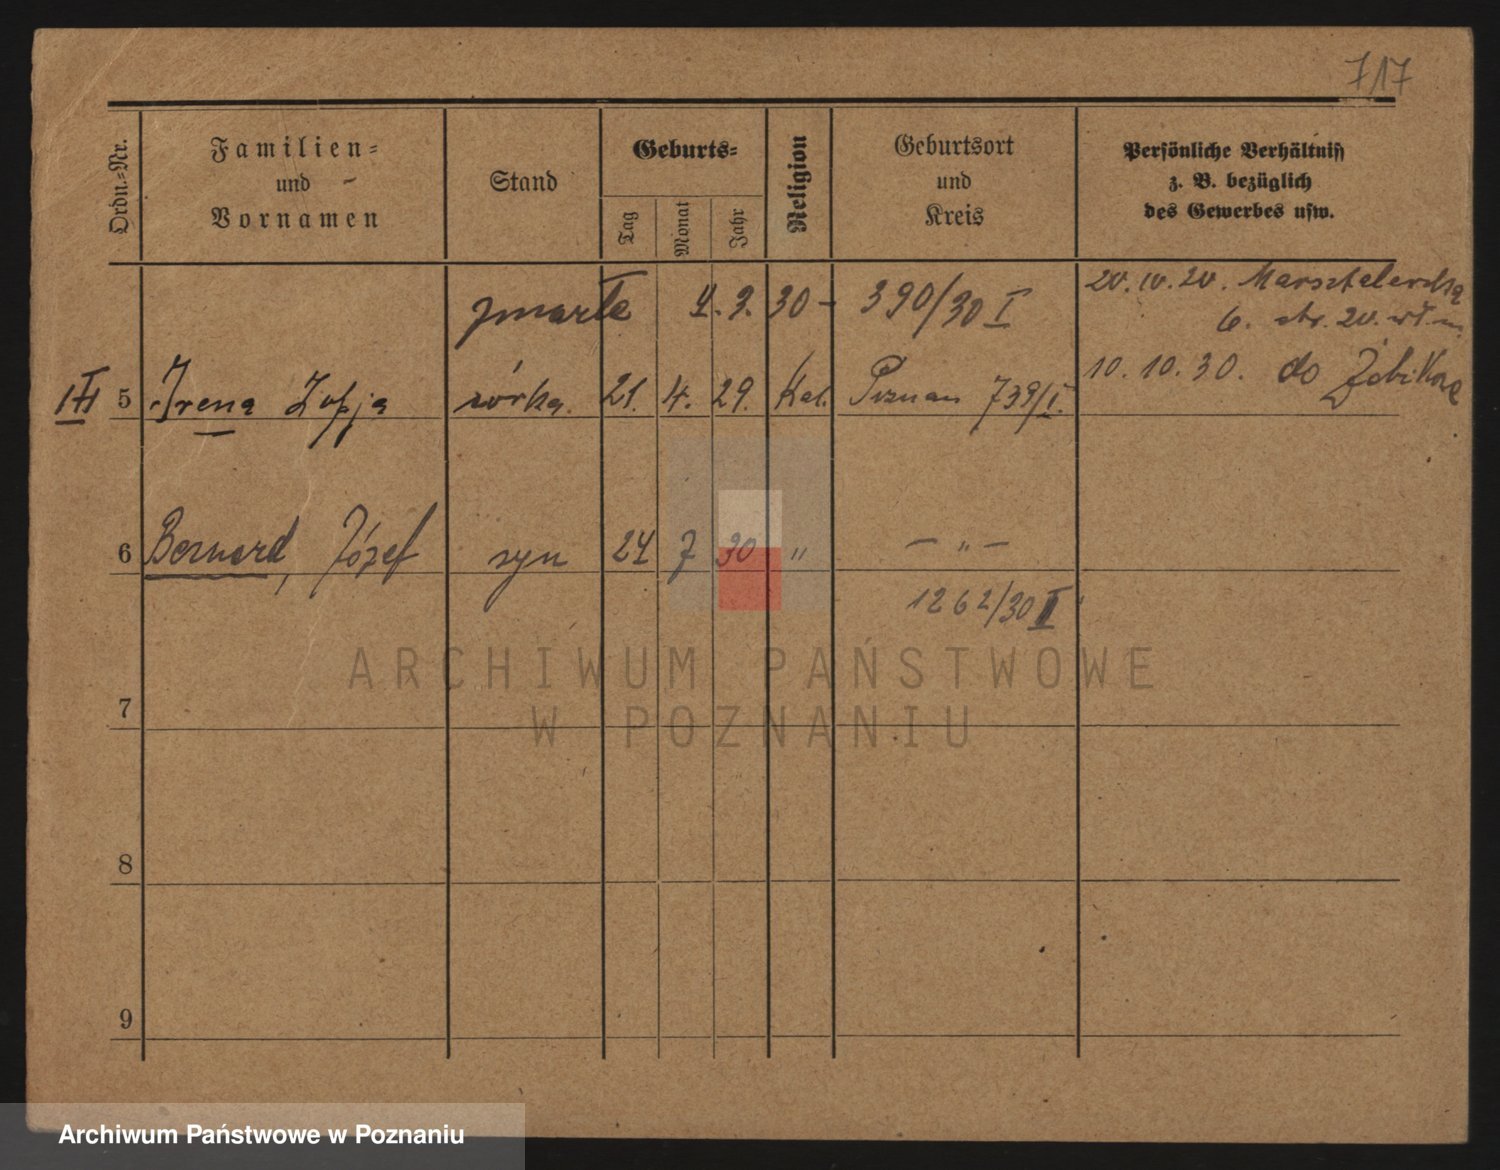 717
Ordn.-Nr.
Familien-
und
Vornamen
Stand
Geburts-
Tag
Monat
Jahr
Religion
Geburtsort
und
Kreis
Persönliche Verhältniss
z. B. bezüglich
des Gewerbes usw.
zmarła 4. 3. 30 - 390/30 I
20. 10. 20. Marsztalerska
6. str. 20.
III 5 Irena Zofja córka. 21. 4. 29. Kat. Poznań 739/I. 10. 10. 30. do Żabikova
6 Bernard, Józef syn 24 7 30 " — " —
1262/30 II
7
8
9
ARCHIWUM PAŃSTWOWE
W POZNANIU
Archiwum Państwowe w Poznaniu